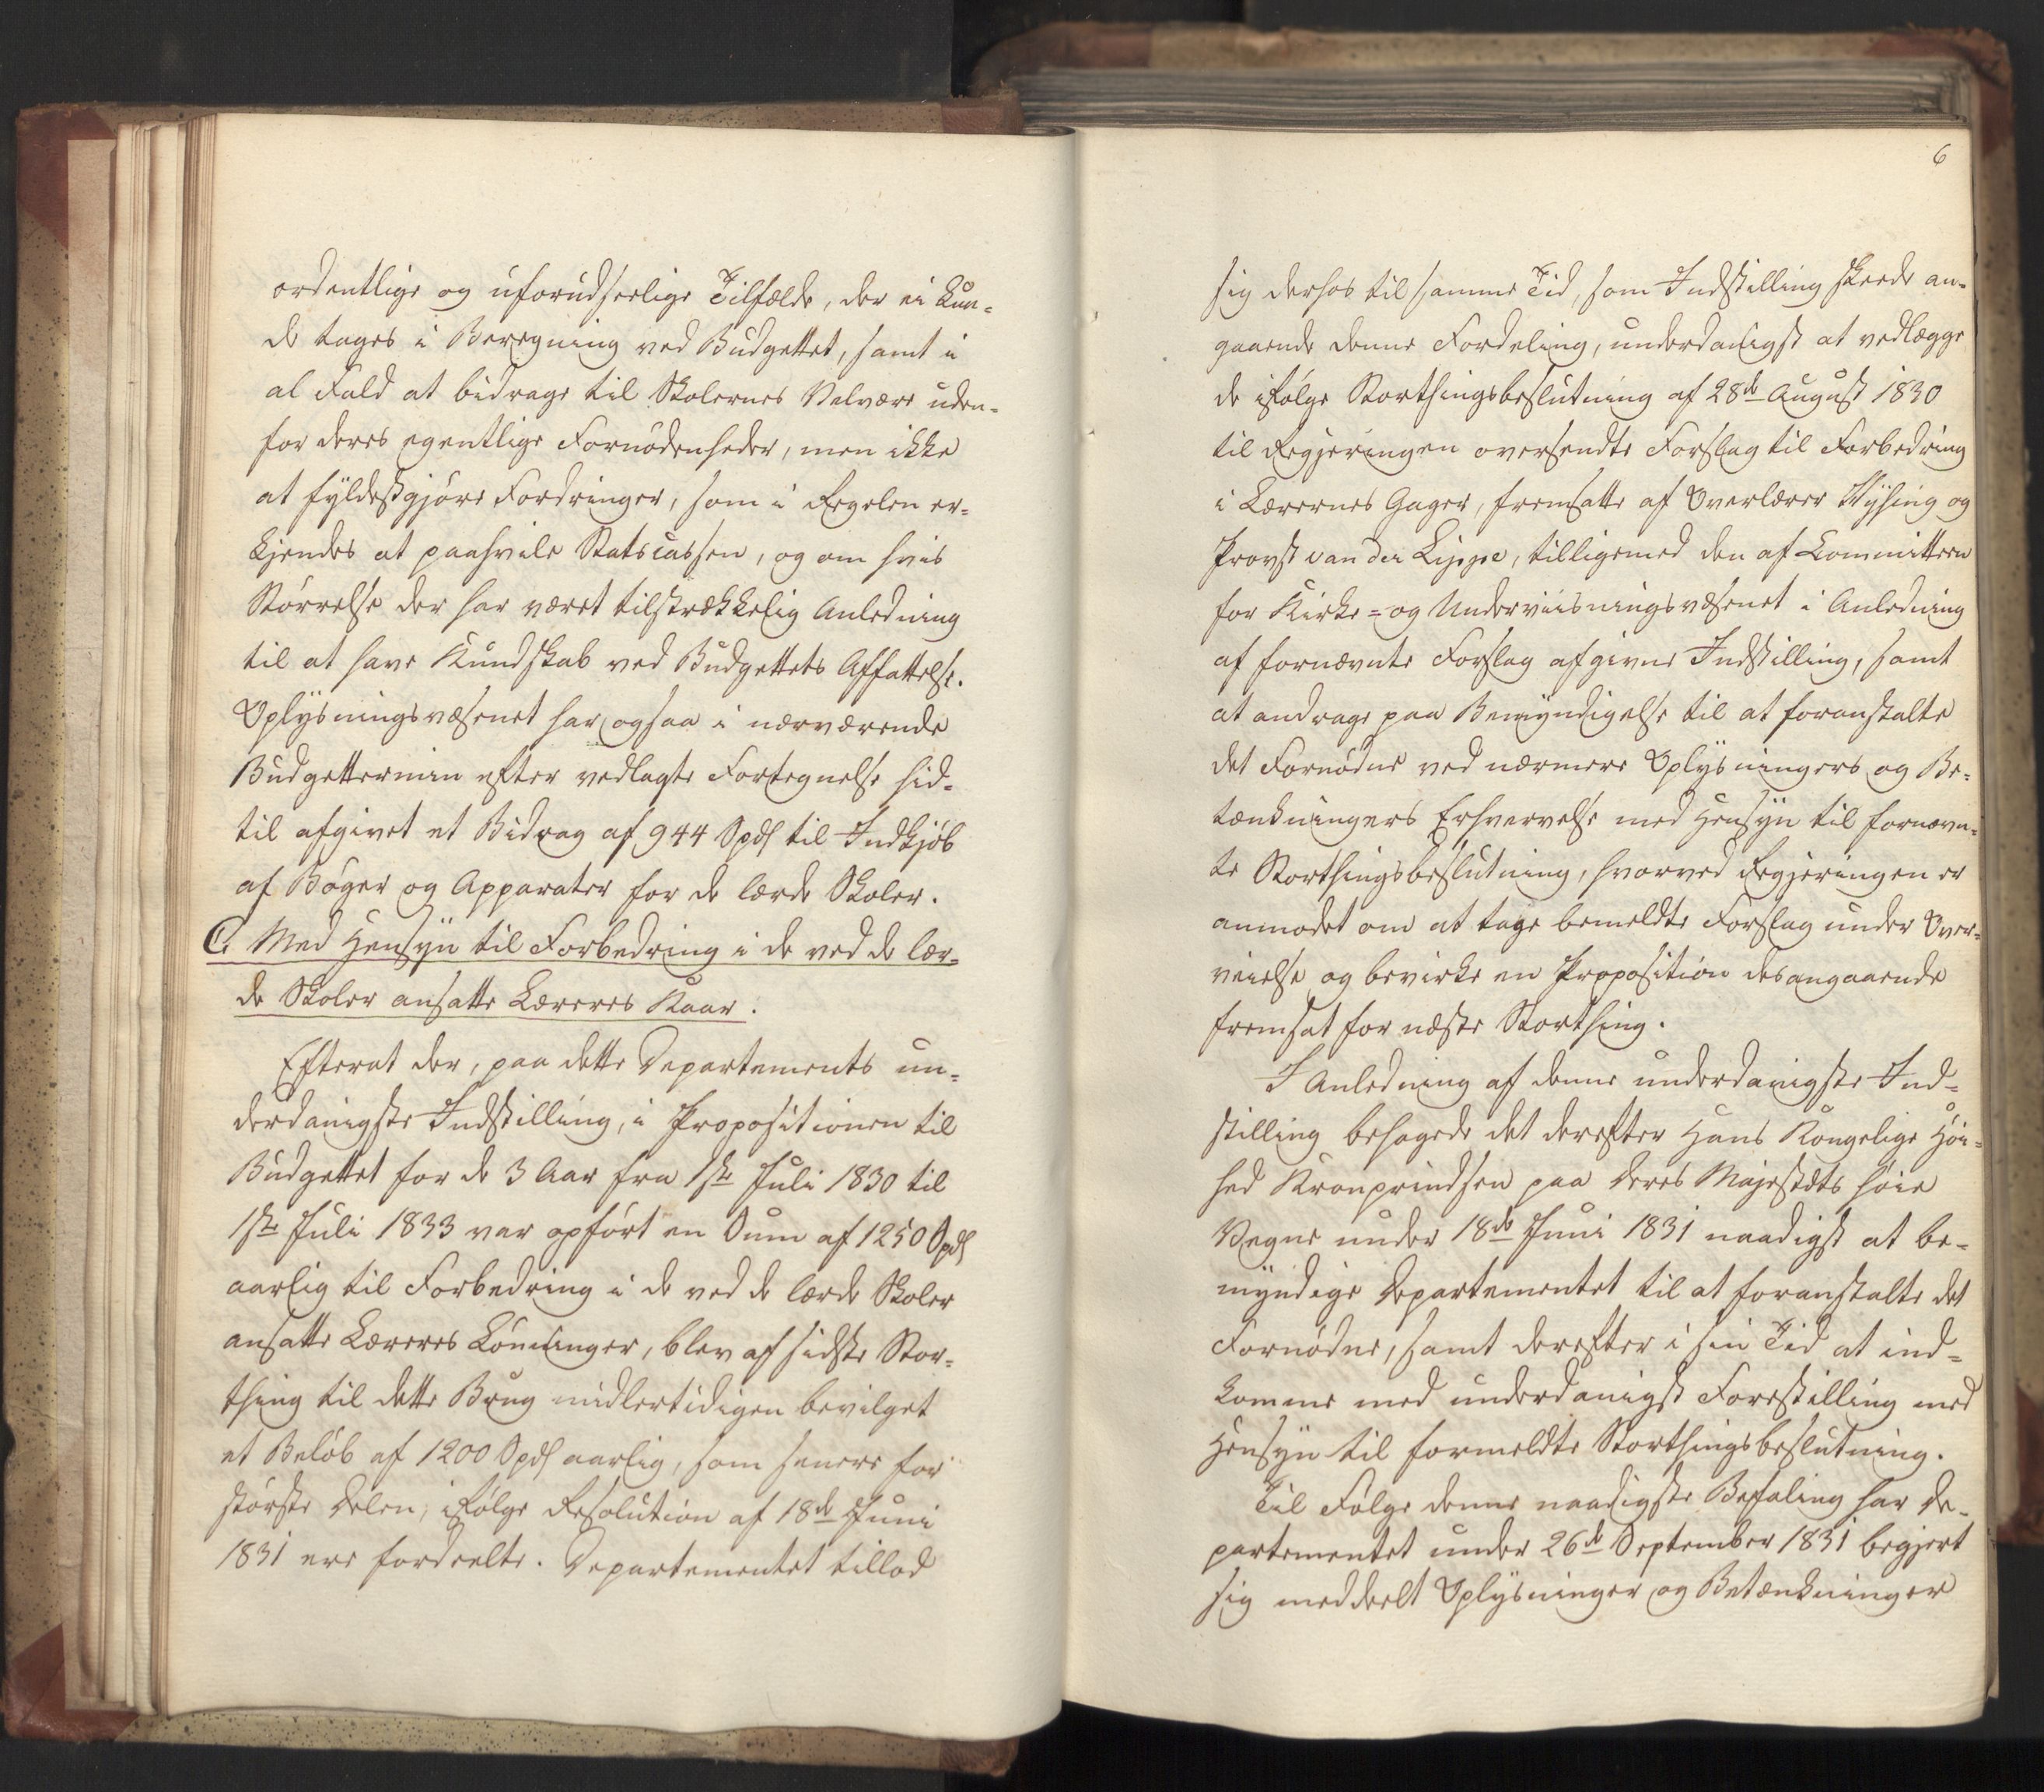 ordentlige og uforudseelige Tilfælde, der ei kun-
de tages i Beregning ved Budgettet, samt i
al Fald at bidrage til Skolernes Velvære uden-
for deres egentlige Fornødenheder, men ikke
at fyldestgjøre Fordringer, som i Regelen er-
kjendes at paahvile Statscassen, og om hvis
Størrelse der har været tilstrækkelig Anledning
til at have Kundskab ved Budgettets Affattelse.
Oplysningsvæsenet har ogsaa i nærværende
Budgettermin efter vedlagte Fortegnelse hid-
til afgivet et Bidrag af 944 Spd til Indkjøb
af Bøger og Apparater for de lærde Skoler.
C. Med Hensyn til Forbedring i de ved de lær-
de Skoler ansatte Læreres Kaar.
Efterat der, paa dette Departements un-
derdanigste Indstilling, i Propositionen til
Budgettet for de 3 Aar fra 1ste Juli 1830 til
1ste Juli 1833 var opført en Sum af 1250 Spd
aarlig til Forbedring i de ved de lærde Skoler
ansatte Læreres Lønninger, blev af sidste Stor-
thing til dette Brug midlertidigen bevilget
et Beløb af 1200 Spd aarlig, som senere for
største Delen, ifølge Resolution af 18de Juni
1831 ere fordeelte. Departementet tillod
6
sig derhos til samme Tid, som Indstilling skeede an-
gaaende denne Fordeling, underdanigst at vedlægge
de ifølge Storthingsbeslutning af 28de August 1830
til Regjeringen oversendte Forslag til Forbedring
i Lærernes Gager, fremsatte af Overlærer Rysing og
Provst van der Lippe, tilligemed den af Committeen
for Kirke- og Underviisningsvæsenet i Anledning
af fornævnte Forslag afgivne Indstilling, samt
at andrage paa Bemyndigelse til at foranstalte
det Fornødne ved nærmere Oplysningers og Be-
tænkningers Erhvervelse med Hensyn til fornævn-
te Storthingsbeslutning, hvorved Regjeringen er
anmodet om at tage bemeldte Forslag under Over-
veielse og bevirke en Proposition desangaaende
fremsat for næste Storthing.
I Anledning af denne underdanigste Ind-
stilling behagede det derefter Hans Kongelige Høi-
hed Kronprindsen paa Deres Majestæts høie
Vegne under 18de Juni 1831 naadigst at be-
myndige Departementet til at foranstalte det
Fornødne, samt derefter i sin Tid at ind-
komme med underdanigst Forestilling med
Hensyn til formeldte Storthingsbeslutning.
Til Følge denne naadigste Befaling har De-
partementet under 26de September 1831 begjert
sig meddeelt Oplysninger og Betænkninger